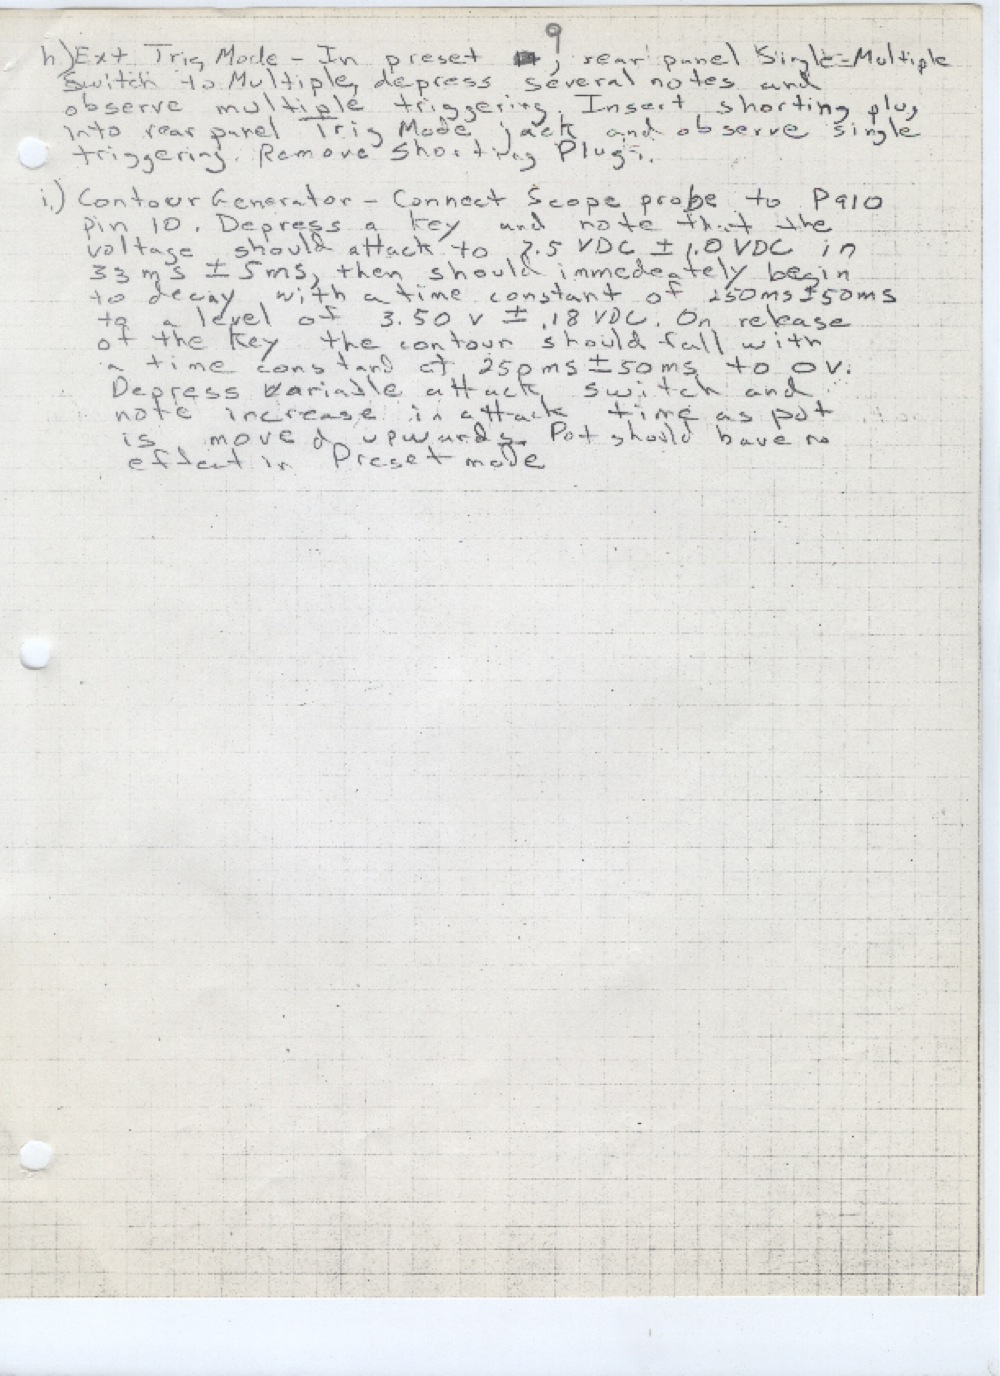 9
h) Ext Trig Mode - In preset , rear panel Single-Multiple
Switch to Multiple, depress several notes and
observe multiple triggering. Insert shorting plug
into rear panel Trig Mode jack and observe single
triggering. Remove Shorting Plug.
i.) Contour Generator - Connect Scope probe to P910
pin 10. Depress a key and note that the
voltage should attack to 7.5 VDC ± 1.0 VDC in
33 ms ± 5ms, then should immedeately begin
to decay with a time constant of 250ms±50ms
to a level of 3.50 v ± .18 VDC. On release
of the key the contour should fall with
a time constand of 250ms±50ms to 0v.
Depress variable attack switch and
note increase in attack time as pot
is moved upwards. Pot should have no
effect in Preset mode